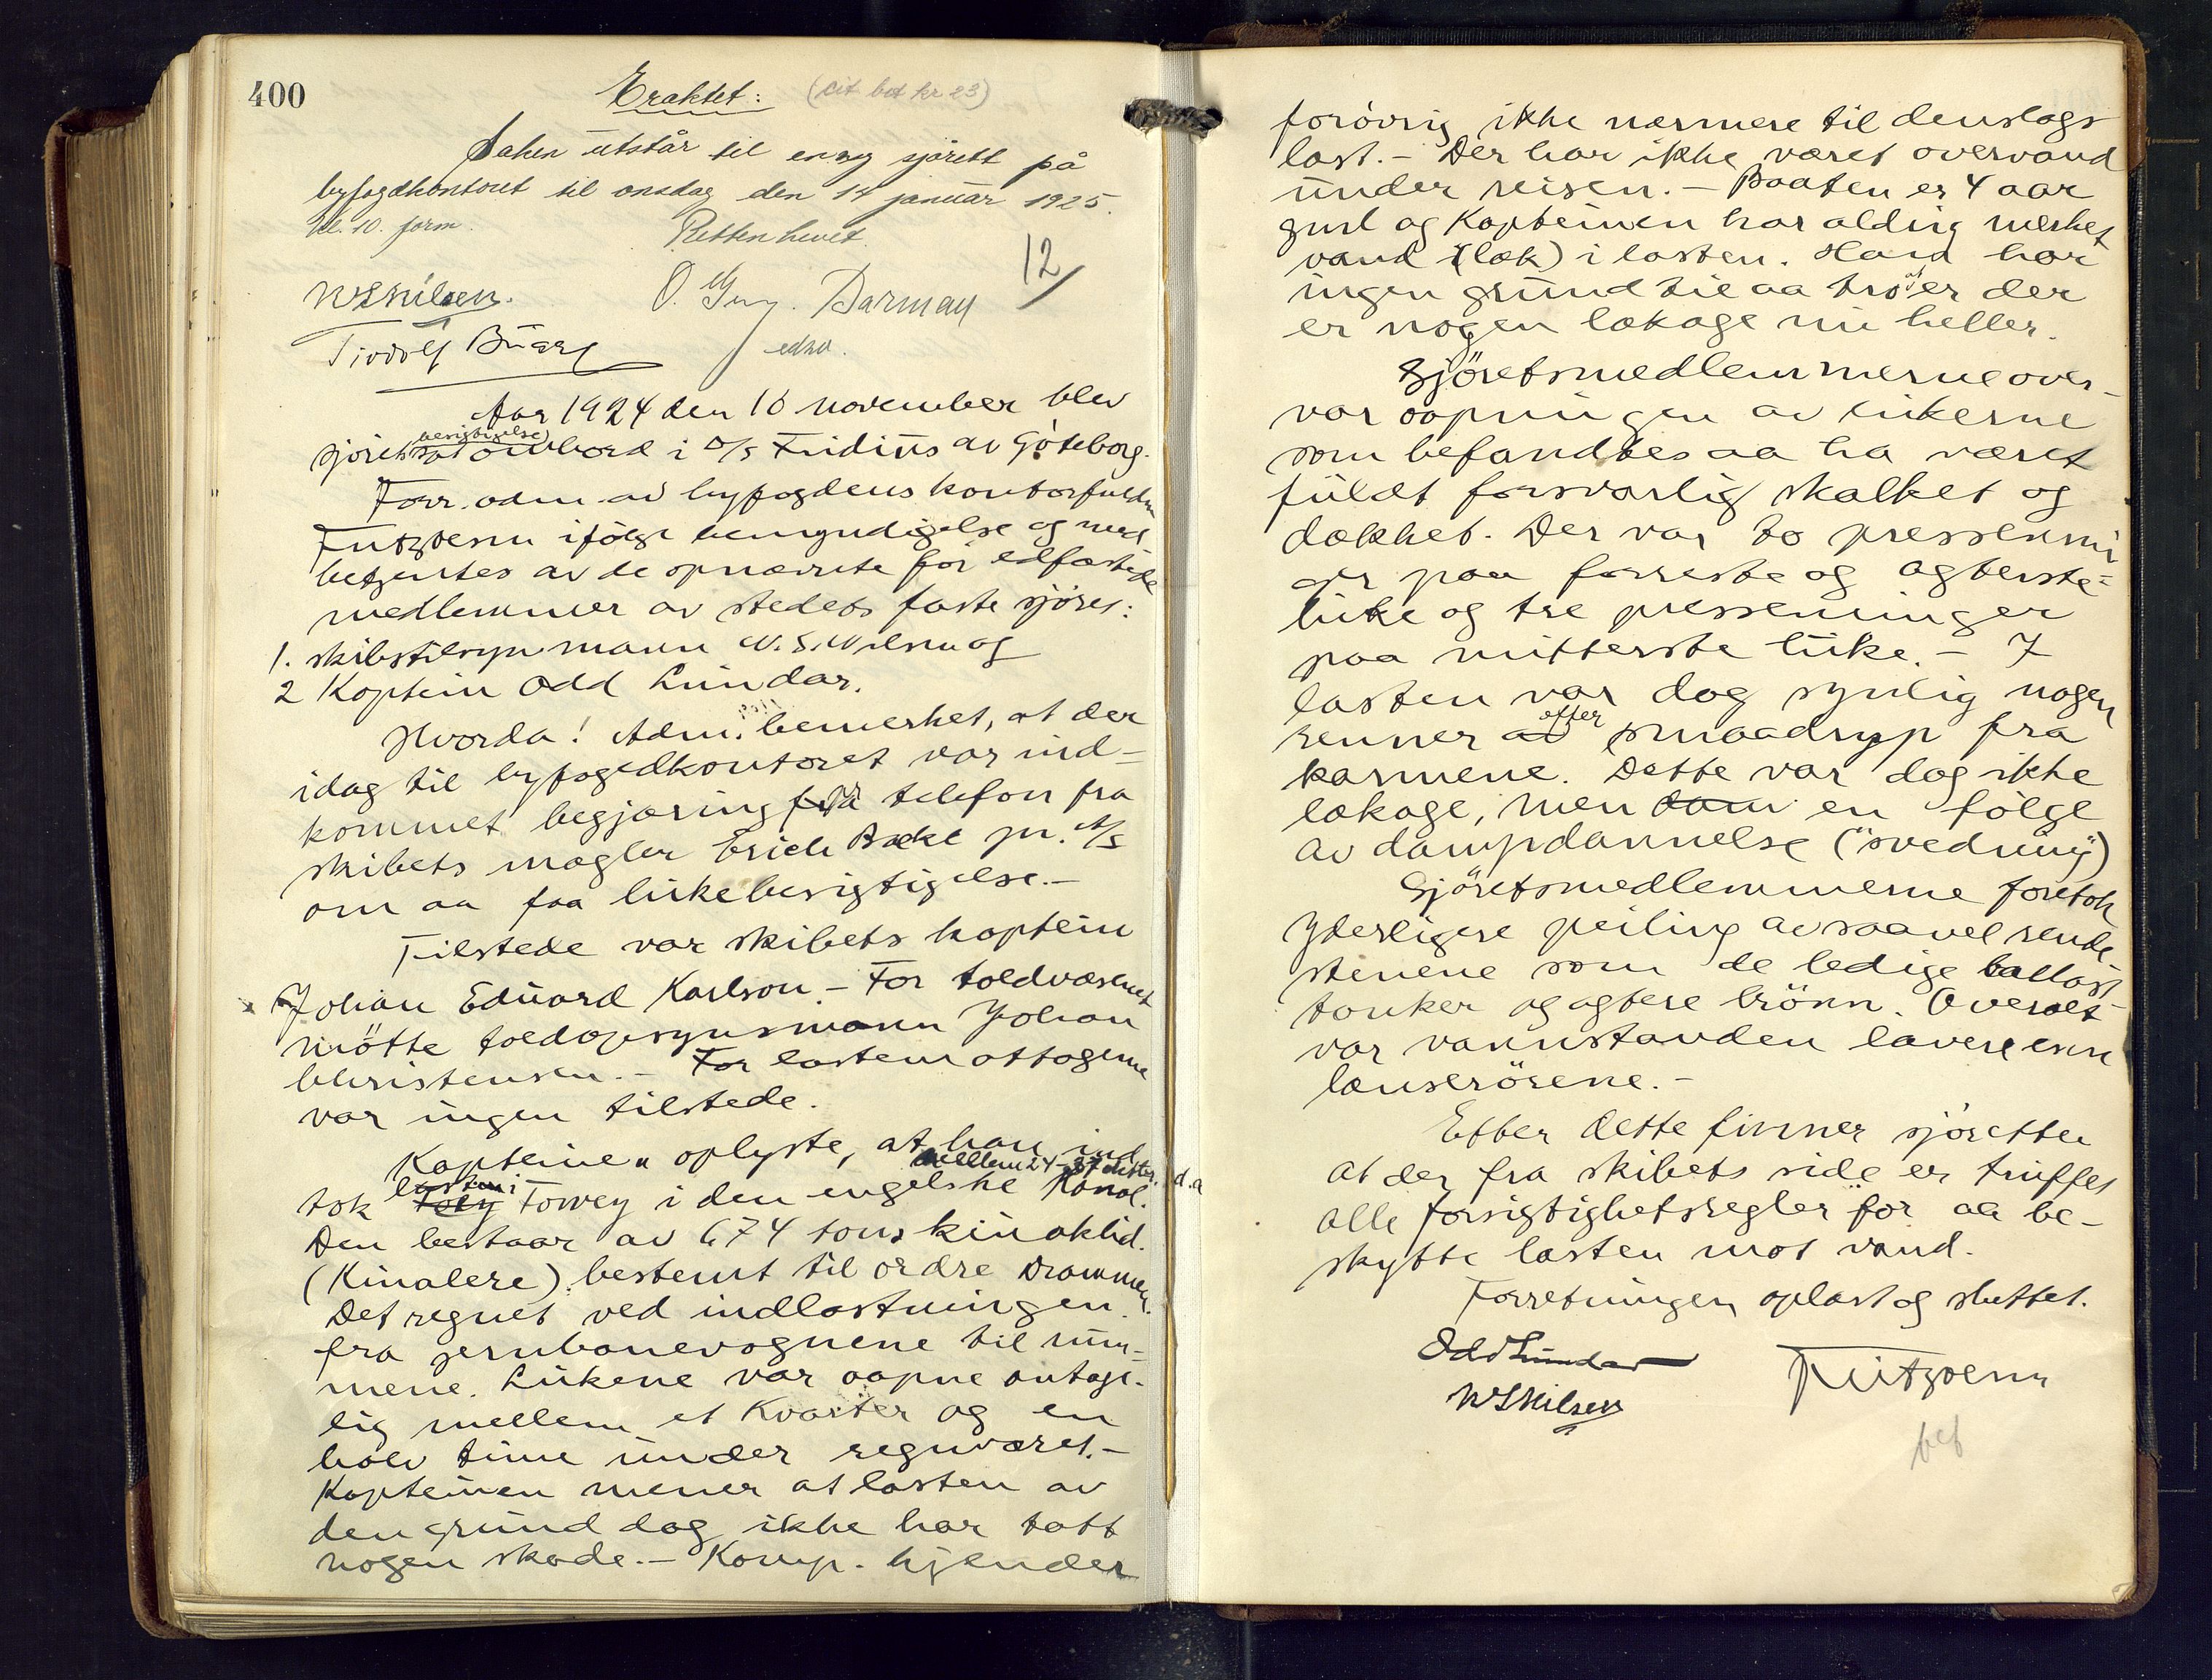 400
Eraktet:
(cit bet kr 23)
Saken utstår til en ny sjörett på
byfogdkontoret til onsdag den 14 januar 1925.
kl. 10. form.
Retten hevet.
12/
N S Nilsen.
O. Darman
edsv.
Aar 1924 den 10 november blev
besigtigelse
sjöret sat ombord i D/S Fridius av Göteborg.
Forr. adm. av byfogdens kontorfuldm
ifölge bemyndigelse og med
betjentes av de opnævnte før edfæstede
medlemmer av stedets faste sjöret:
1. skibstilsynsmann N. S. Nilsen og
2 Kaptein Odd Lundar.
Hvorda! Adm. bemerket, at der
idag til byfogedkontoret var ind-
kommet begjæring pr telefon fra
skibets mægler Erich Bache jr. A/S
om aa faa lukebesigtigelse.-
Tilstede var skibets kaptein
Johan Eduard Karlson.- For toldvæsenet
mötte toldopsynsmann Johan
Christensen.- For lastemottagerne
var ingen tilstede.
Kapteinen oplyste, at han ind
mellem 24-27 d.a
tok lasten i Fowey i den engelske Kanal.
Den bestaar av 674 tons kinaklid.
(Kinalere) bestemt til ordre Drammen.
Det regnet ved indlastningen
fra jernbanevognene til rum-
mene. Lukene var aapne antage-
lig mellem et Kvarter og en
halv time under regnværet.-
Kapteinen mener at lasten av
den grund dog ikke har tatt
nogen skade.- Komp. kjender
forövrig ikke nærmere til denslags
last.- Der har ikke været overvand
under reisen.- Baaten er 4 aar
gml og Kapteinen har aldrig merket
vand (læk) i lasten. Hand har
ingen grund til aa tro at der
er nogen lækage nu heller.
Sjöretsmedlemmerne over-
var aapningen av lukerne
som befandtes aa ha været
fuldt forsvarlig skalket og
dækket. Der var to pressennin
ger paa forreste og agterste
luke og tre pressenninger
paa mitterste luke.- I
lasten var dog synlig nogen
renner efter smaadryp fra
karmene. Dette var dog ikke
lækage, men en følge
av dampdannelse ("svedning")
Sjöretsmedlemmerne foretok
yderligere peiling av saavel rende
stenene som de ledige ballast
tanker og agtere brönn. Overalt
var vannstanden lavere enn
lænserörene.-
Etter dette finner sjöretten
at der fra skibets side er truffet
alle forsigtighetsregler for aa be-
skytte lasten mot vand.
Forretningen oplæst og sluttet.
Odd Lundar
N S Nilsen
bef